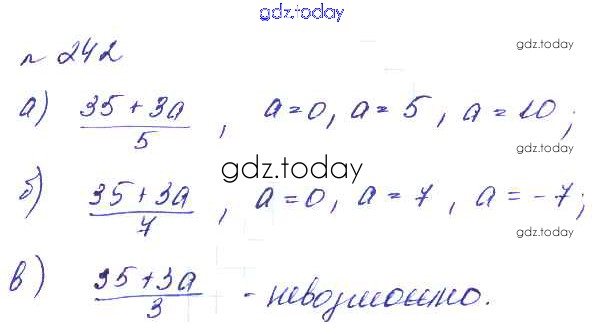 gdz.today
№ 242
gdz.today
а) (35+3a)/5 , a=0, a=5, a=10;
gdz.today
gdz.today
б) (35+3a)/7 , a=0, a=7, a=-7;
gdz.today
в) (35+3a)/3 - невозможно.